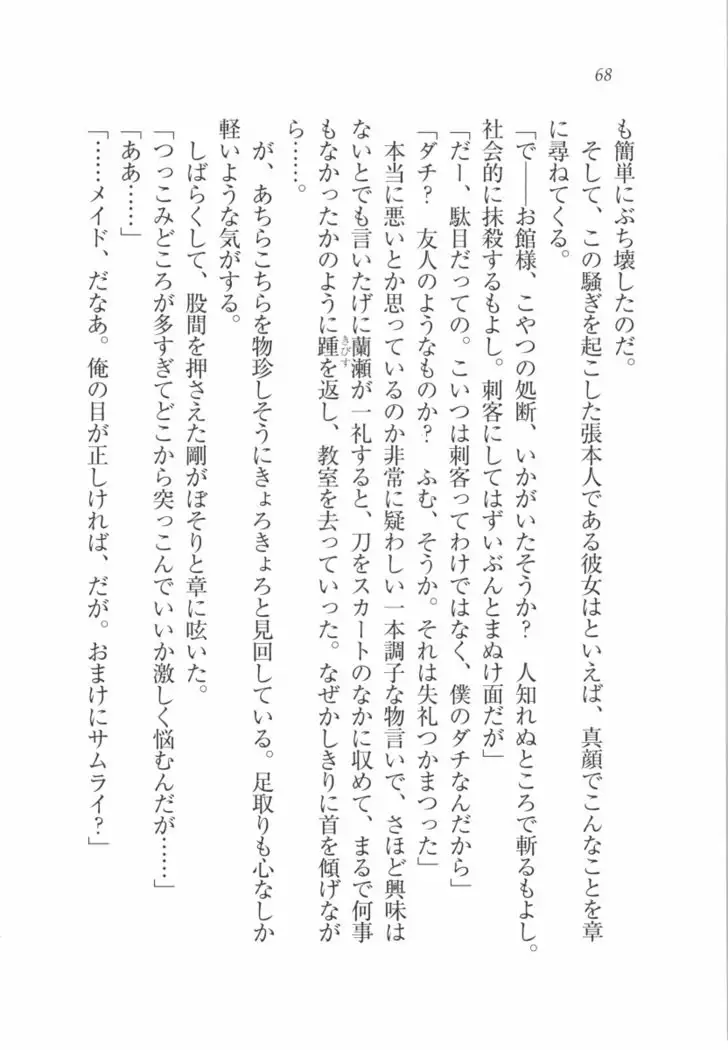 68
も簡単にぶち壊したのだ。
　そして、この騒ぎを起こした張本人である彼女はといえば、真顔でこんなことを章
に尋ねてくる。
「で――お館様、こやつの処断、いかがいたそうか？　人知れぬところで斬るもよし。
社会的に抹殺するもよし。刺客にしてはずいぶんとまぬけ面だが」
「だー、駄目だっての。こいつは刺客ってわけではなく、僕のダチなんだから」
「ダチ？　友人のようなものか？　ふむ、そうか。それは失礼つかまつった」
　本当に悪いとか思っているのか非常に疑わしい一本調子な物言いで、さほど興味は
ないとでも言いたげに蘭瀬が一礼すると、刀をスカートのなかに収めて、まるで何事
もなかったかのように踵を返し、教室を去っていった。なぜかしきりに首を傾げなが
きびす
ら……。
　が、あちらこちらを物珍しそうにきょろきょろと見回している。足取りも心なしか
軽いような気がする。
　しばらくして、股間を押さえた剛がぼそりと章に呟いた。
「つっこみどころが多すぎてどこから突っこんでいいか激しく悩むんだが……」
「ああ……」
「……メイド、だなあ。俺の目が正しければ、だが。おまけにサムライ？」